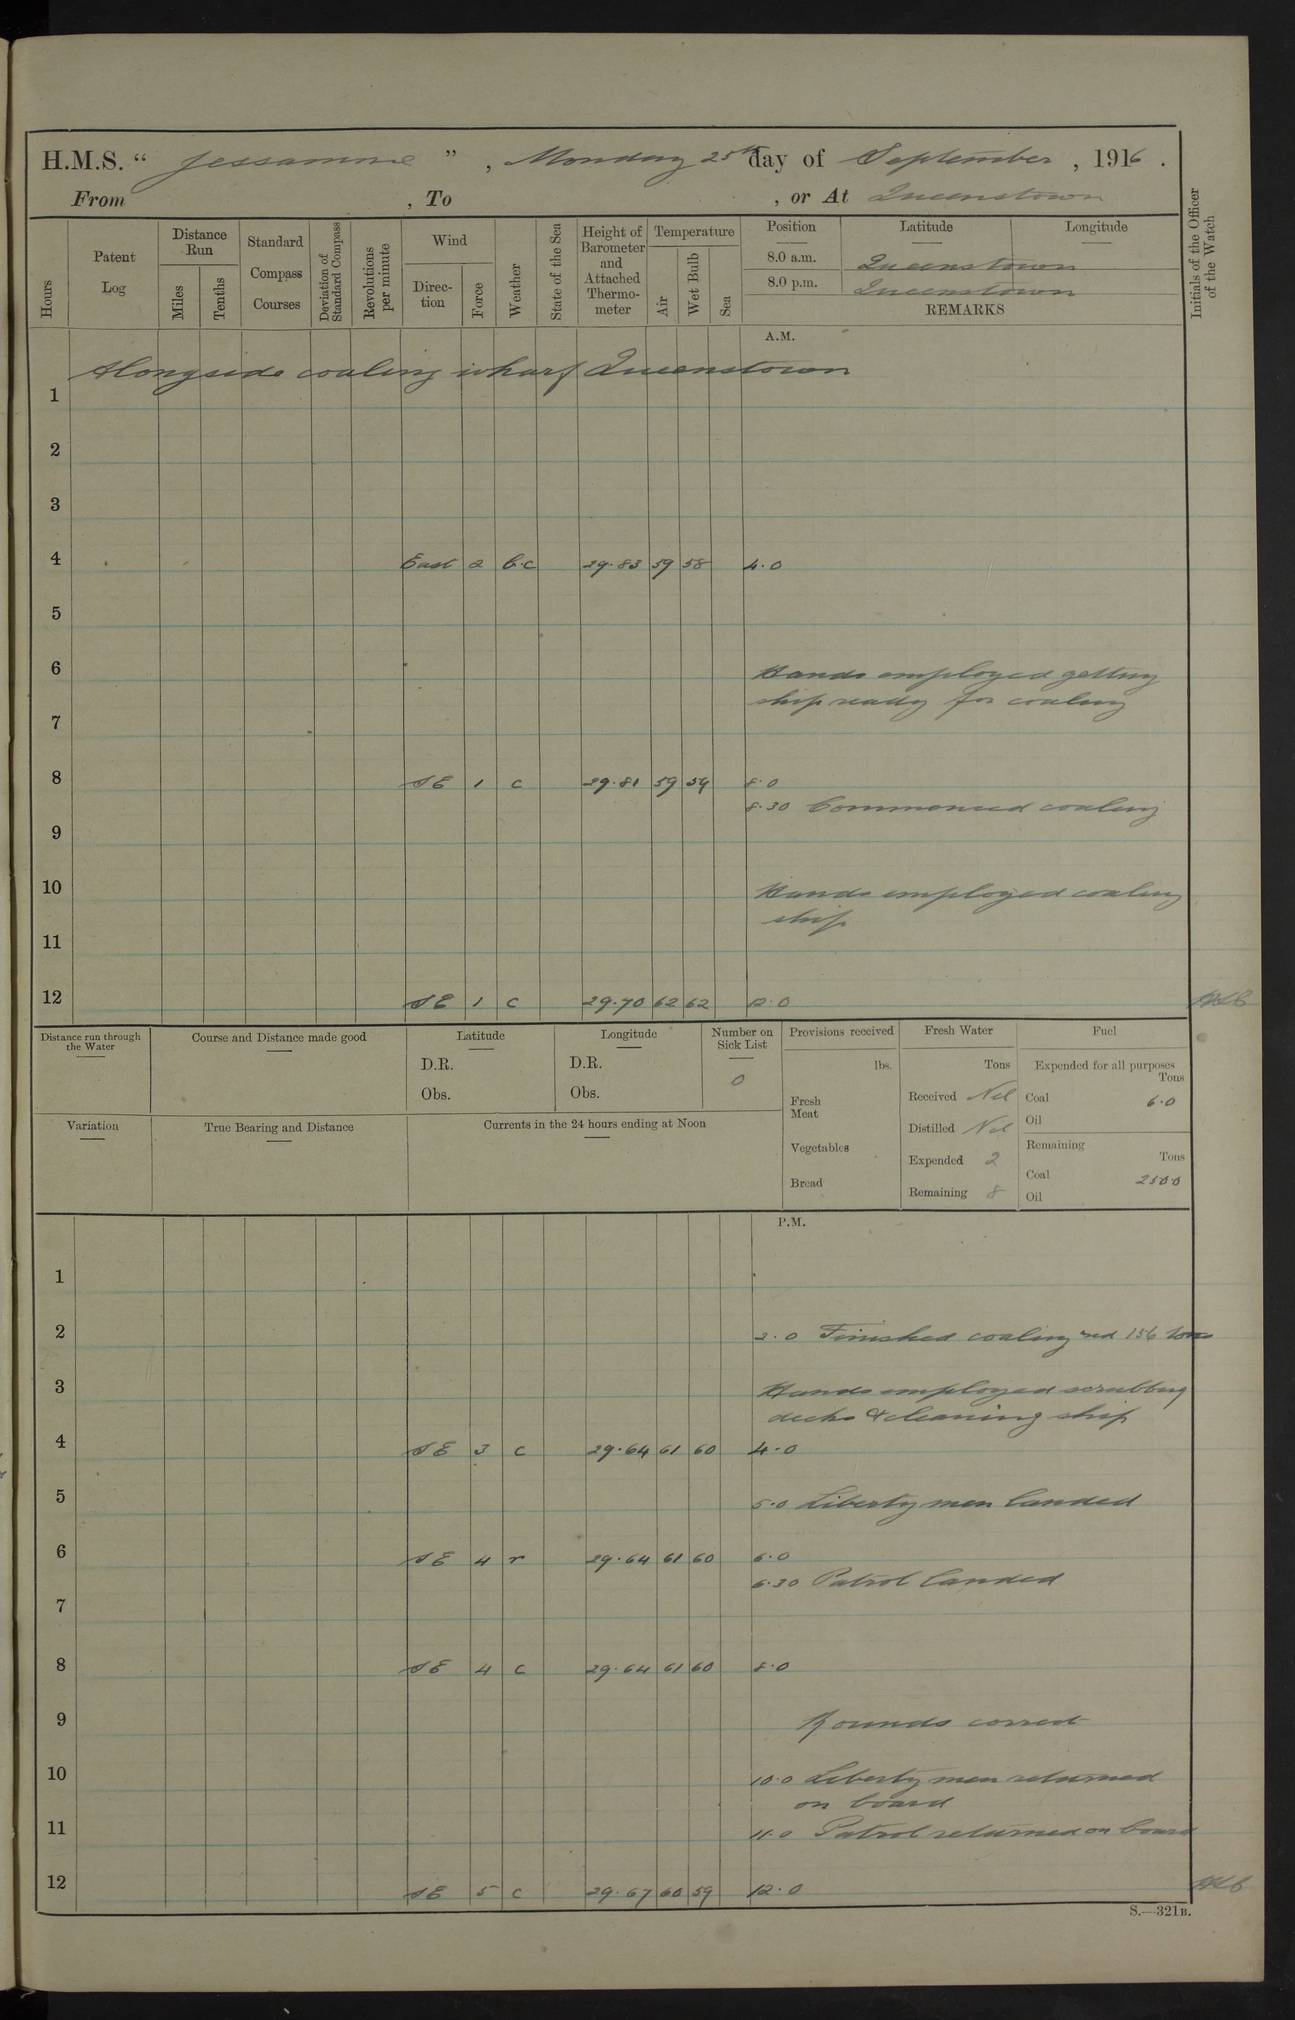 H.M.S. “ Jessamine ” , Monday 25th day of September , 1916 .
From , To , or At Queenstown
Hours
Patent Log
Distance Run
Miles
Tenths
Standard Compass Courses
Deviation of Standard Compass
Revolutions per minute
Wind
Direction
Force
Weather
State of the Sea
Height of Barometer and Attached Thermometer
Temperature
Air
Wet Bulb
Sea
Position Latitude Longitude
8.0 a.m. Queenstown
8.0 p.m. Queenstown
REMARKS
Initials of the Officer of the Watch
A.M.
Alongside coaling wharf Queenstown
1
2
3
4 East 2 b.c 29.83 59 58 4.0
5
6 Hands employed getting
ship ready for coaling
7
8 SE 1 c 29.81 59 59 8.0
8.30 Commenced coaling
9
10 Hands employed coaling
ship
11
12 SE 1 c 29.70 62 62 12.0
Distance run through the Water
Course and Distance made good
Latitude
D.R.
Obs.
Longitude
D.R.
Obs.
Number on Sick List
0
Provisions received
lbs.
Fresh Meat
Vegetables
Bread
Fresh Water
Tons
Received Nil
Distilled Nil
Expended 2
Remaining 8
Fuel
Expended for all purposes
Tons
Coal 6.0
Oil
Remaining
Tons
Coal 250.0
Oil
Variation
True Bearing and Distance
Currents in the 24 hours ending at Noon
P.M.
1
2 2.0 Finished coaling rcd 156 tons
3 Hands employed scrubbing
decks & cleaning ship
4 SE 3 c 29.64 61 60 4.0
5 5.0 Liberty men landed
6 SE 4 r 29.64 61 60 6.0
6.30 Patrol landed
7
8 SE 4 c 29.64 61 60 8.0
9 Rounds correct
10 10.0 Liberty men returned
on board
11 11.0 Patrol returned on board
12 SE 5 c 29.67 60 59 12.0
S.—321B.